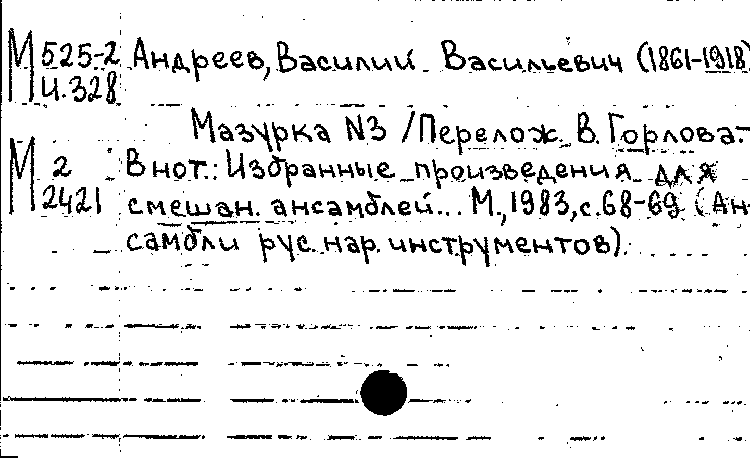 М 525-2 Андреев, Василий Васильевич (1861-1918)
И.328
Мазурка N3 / Перелож. В. Горлова.-
М 2 В нот.: Избранные произведения для
2421 смешан. ансамблей... М., 1983, с. 68-69 (Ан-
самбли рус. нар. инструментов).